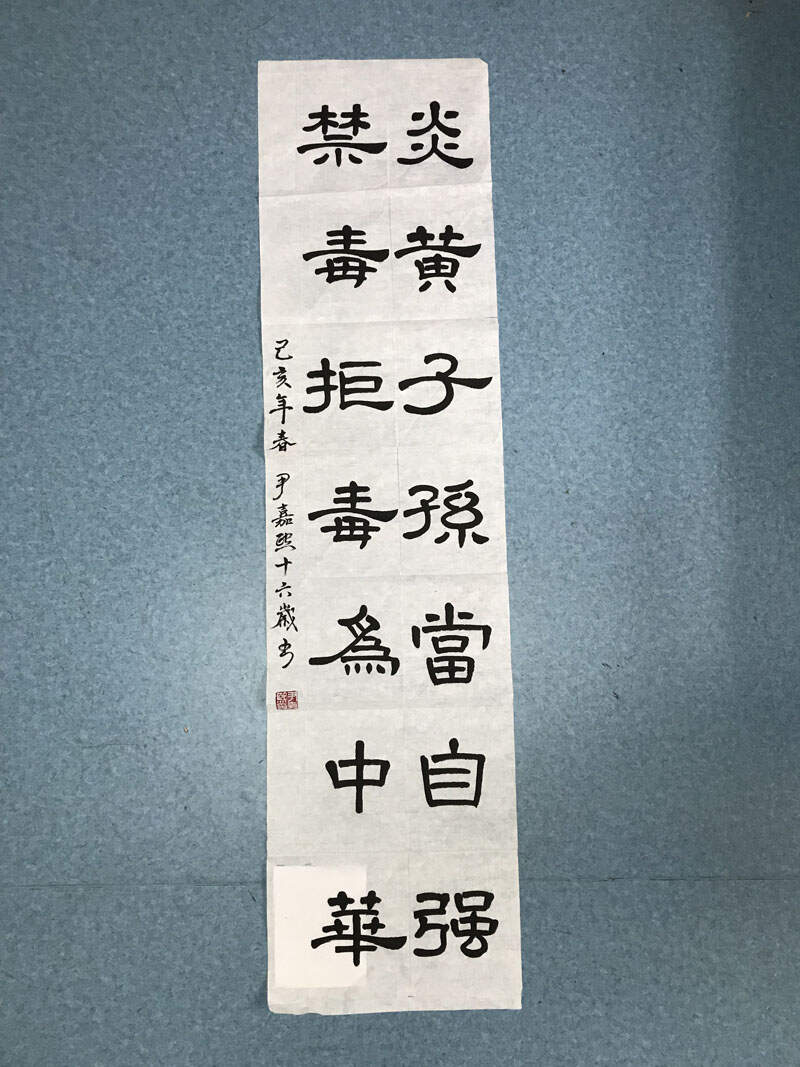 炎黄子孫當自强
禁毒拒毒為中華
己亥年春 尹嘉熙十六歲书